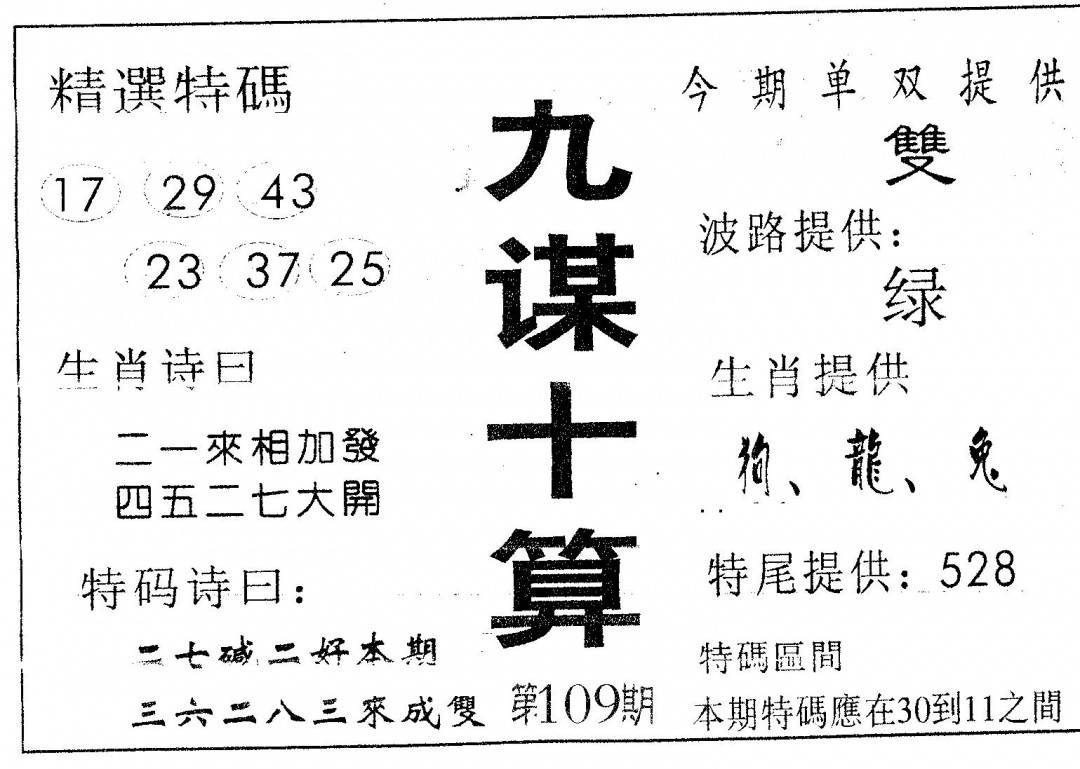 精選特碼
17 29 43
23 37 25
生肖诗曰
二一來相加發
四五二七大開
特码诗曰：
二七碱二好本期
三六二八三來成雙
九谋十算
第109期
今期单双提供
雙
波路提供：
绿
生肖提供
狗、龍、兔
特尾提供：528
特碼區間
本期特碼應在30到11之間